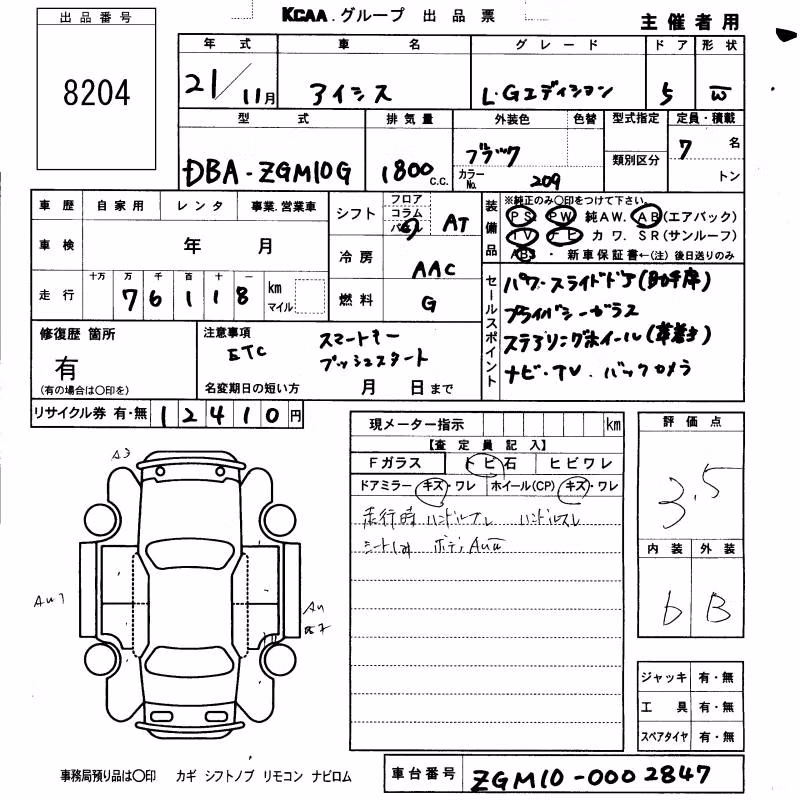 KCAA.グループ 出品票
主催者用
出品番号
8204
年式 車名 グレード ドア 形状
21/11月 アイシス L・Gエディション 5 W
型式 排気量 外装色 色替 型式指定 定員・積載
DBA-ZGM10G 1800c.c. ブラック 類別区分 7名
カラーNo. 209 トン
車歴 自家用 レンタ 事業.営業車
車検 年 月
走行 十万 万 千 百 十 一
76118 km マイル
シフト フロア コラム AT
冷房 AAC
燃料 G
装備品 ※純正のみ○印をつけて下さい。
PS PW 純AW. AB(エアバック)
TV ナビ カワ. SR(サンルーフ)
ABS・新車保証書←(注)後日送りのみ
セールスポイント
パワースライドドア(助手席)
プライバシーガラス
ステアリングホイール(革巻き)
ナビ・TV.バックカメラ
修復歴 箇所
有
(有の場合は○印を)
注意事項 スマートキー
ETC プッシュスタート
名変期日の短い方 月 日まで
リサイクル券 有・無 12410円
現メーター指示 km
【査定員記入】
Fガラス トビ石 ヒビワレ
ドアミラー キズ・ワレ ホイール(CP) キズ・ワレ
走行時 ハンドルブレ ハンドルスレ
ボディ
評価点
3.5
内装 外装
6 B
A3
ジャッキ 有・無
工具 有・無
スペアタイヤ 有・無
事務局預り品は○印 カギ シフトノブ リモコン ナビロム
車台番号 ZGM10-0002847